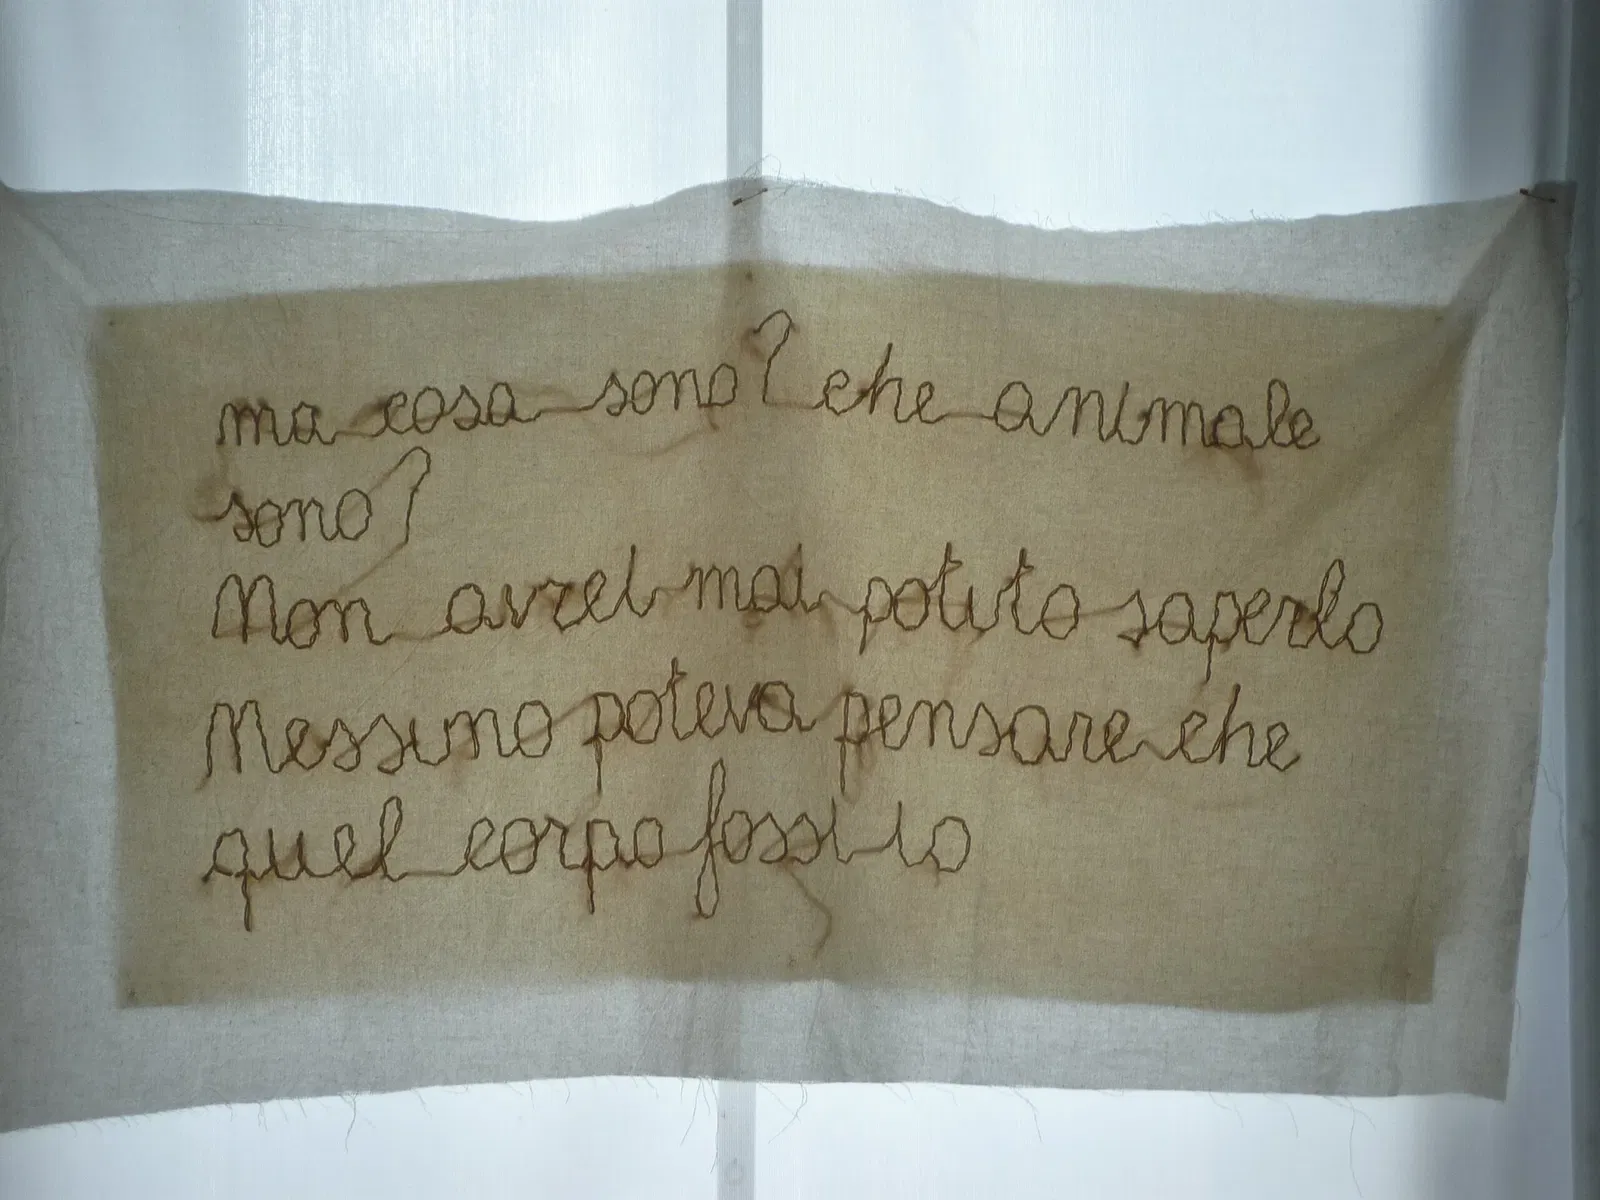 ma cosa sono? che animale
sono?
Non avrei mai potuto saperlo
Nessuno poteva pensare che
quel corpo fossi io